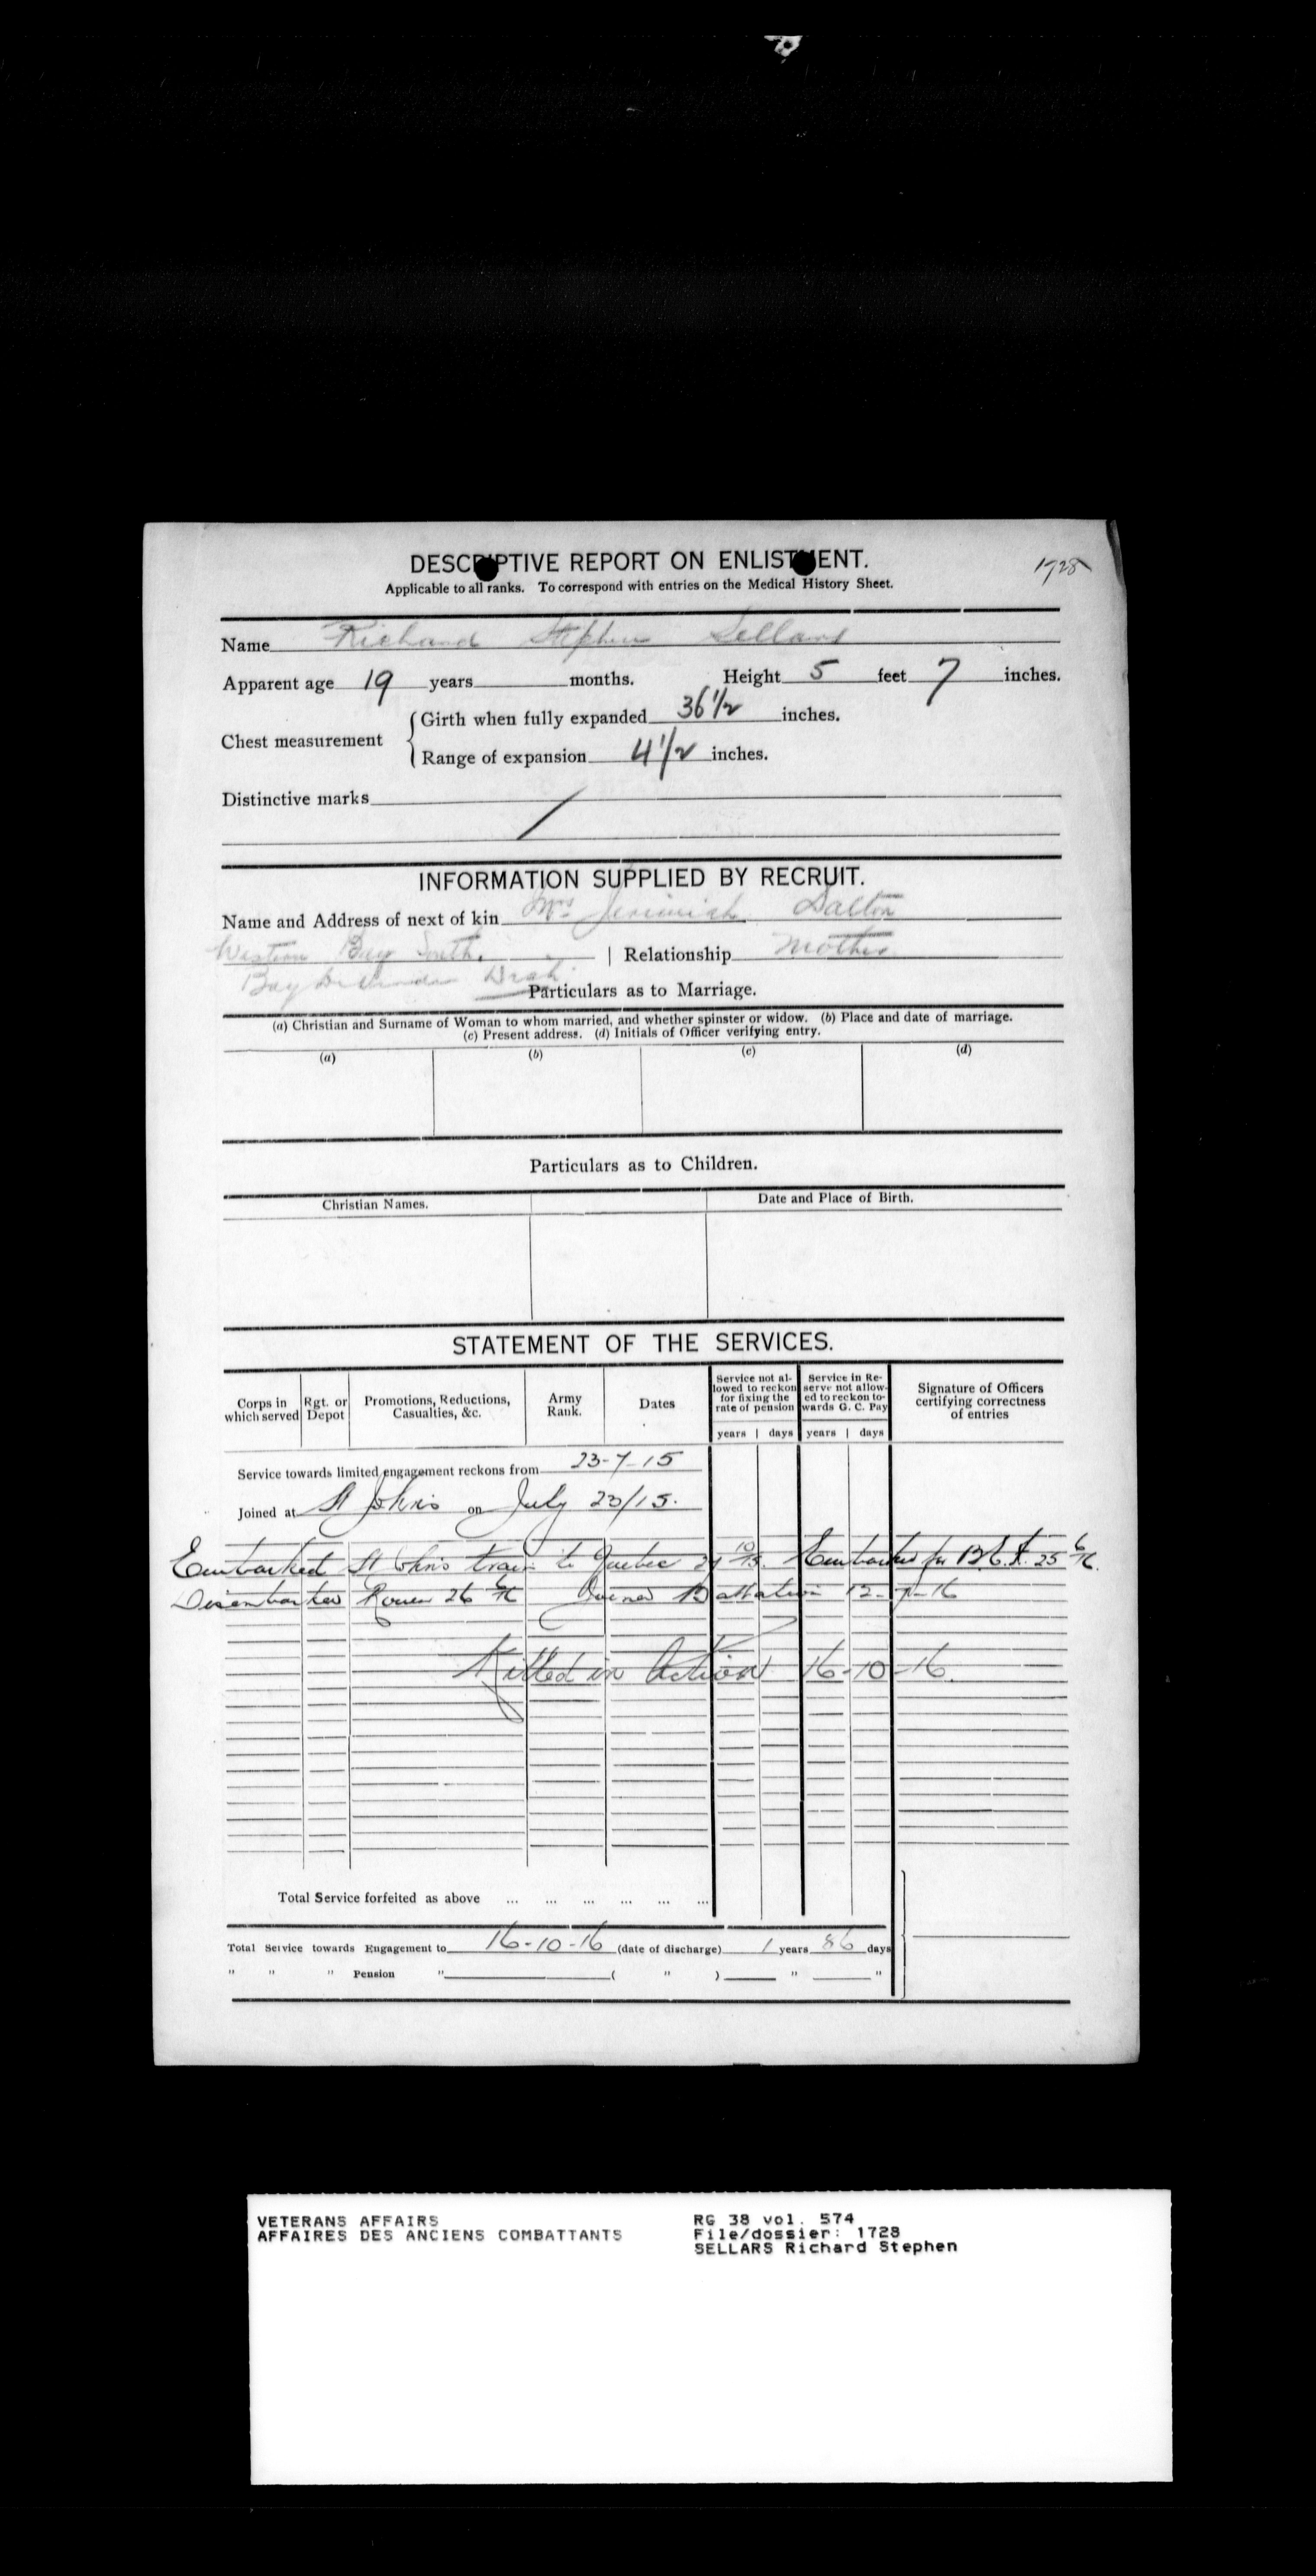 DESCRIPTIVE REPORT ON ENLISTMENT.
1728
Applicable to all ranks. To correspond with entries on the Medical History Sheet.
Name Richard Stephen Sellars
Apparent age 19 years months. Height 5 feet 7 inches.
Chest measurement { Girth when fully expanded 36 1/2 inches.
Range of expansion 4 1/2 inches.
Distinctive marks /
INFORMATION SUPPLIED BY RECRUIT.
Name and Address of next of kin Mrs Jeremiah Dalton
Western Bay South. | Relationship Mother
Bay de Verde Dist.
Particulars as to Marriage.
(a) Christian and Surname of Woman to whom married, and whether spinster or widow. (b) Place and date of marriage.
(c) Present address. (d) Initials of Officer verifying entry.
(a) (b) (c) (d)
Particulars as to Children.
Christian Names. Date and Place of Birth.
STATEMENT OF THE SERVICES.
Corps in which served Rgt. or Depot Promotions, Reductions, Casualties, &c. Army Rank. Dates Service not allowed to reckon for fixing the rate of pension Service in Reserve not allowed to reckon towards G. C. Pay Signature of Officers certifying correctness of entries
years | days years | days
Service towards limited engagement reckons from 23-7-15
Joined at St John's on July 23/15.
Embarked St Johns train to Quebec 10/15. Embarked for B.E.F. 25 6/16.
Disembarked Rouen 26 6/16 Joined Battalion 12-7-16
Killed in Action 16-10-16.
Total Service forfeited as above ... ... ... ... ... ...
Total Service towards Engagement to 16-10-16 (date of discharge) 1 years 86 days
" " " Pension " ( " ) " "
VETERANS AFFAIRS
AFFAIRES DES ANCIENS COMBATTANTS
RG 38 vol. 574
File/dossier: 1728
SELLARS Richard Stephen